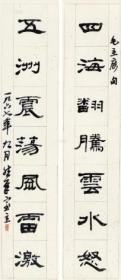 毛主席句
四海翻騰雲水怒
五洲震蕩風雷激
一九六七年